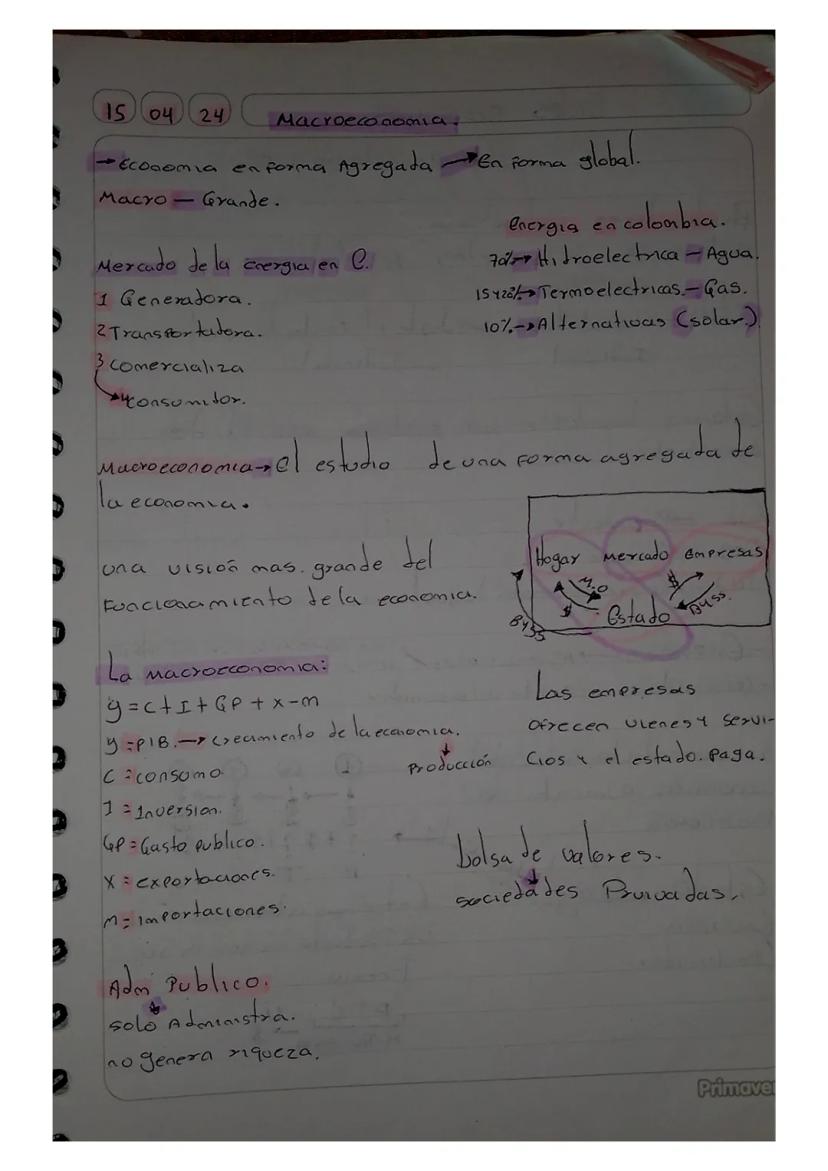 15 04 24 Macroeconomia.
→ Economia en forma Agregada → En forma global.
Macro — Grande.
Energia en colombia.
Mercado de la Energia en C.
70% → Hidroelectrica — Agua.
1 Generadora.
→ Termoelectricas. — Gas.
2 Transportadora.
10% → Alternativas (solar.)
3 Comercializa
Consumidor.
Macroeconomia → El estudio de una forma agregada de
la economia.
una visión mas. grande del
Funcionamiento de la economia.
Hogar Mercado Empresas
M.O $
$ Estado BySS.
BySS
La macroeconomia:
y = c + I + GP + x - m
y = PIB. → Crecimiento de la economia.
↓
Producción
C = consumo
I = Inversion.
GP = Gasto publico.
X = exportaciones.
M = Importaciones.
Las empresas
ofrecen vienes y servi-
cios y el estado. paga.
bolsa de valores.
↓
sociedades Privadas.
Adm Publico.
↓
solo Administra.
no genera riqueza.
Primave